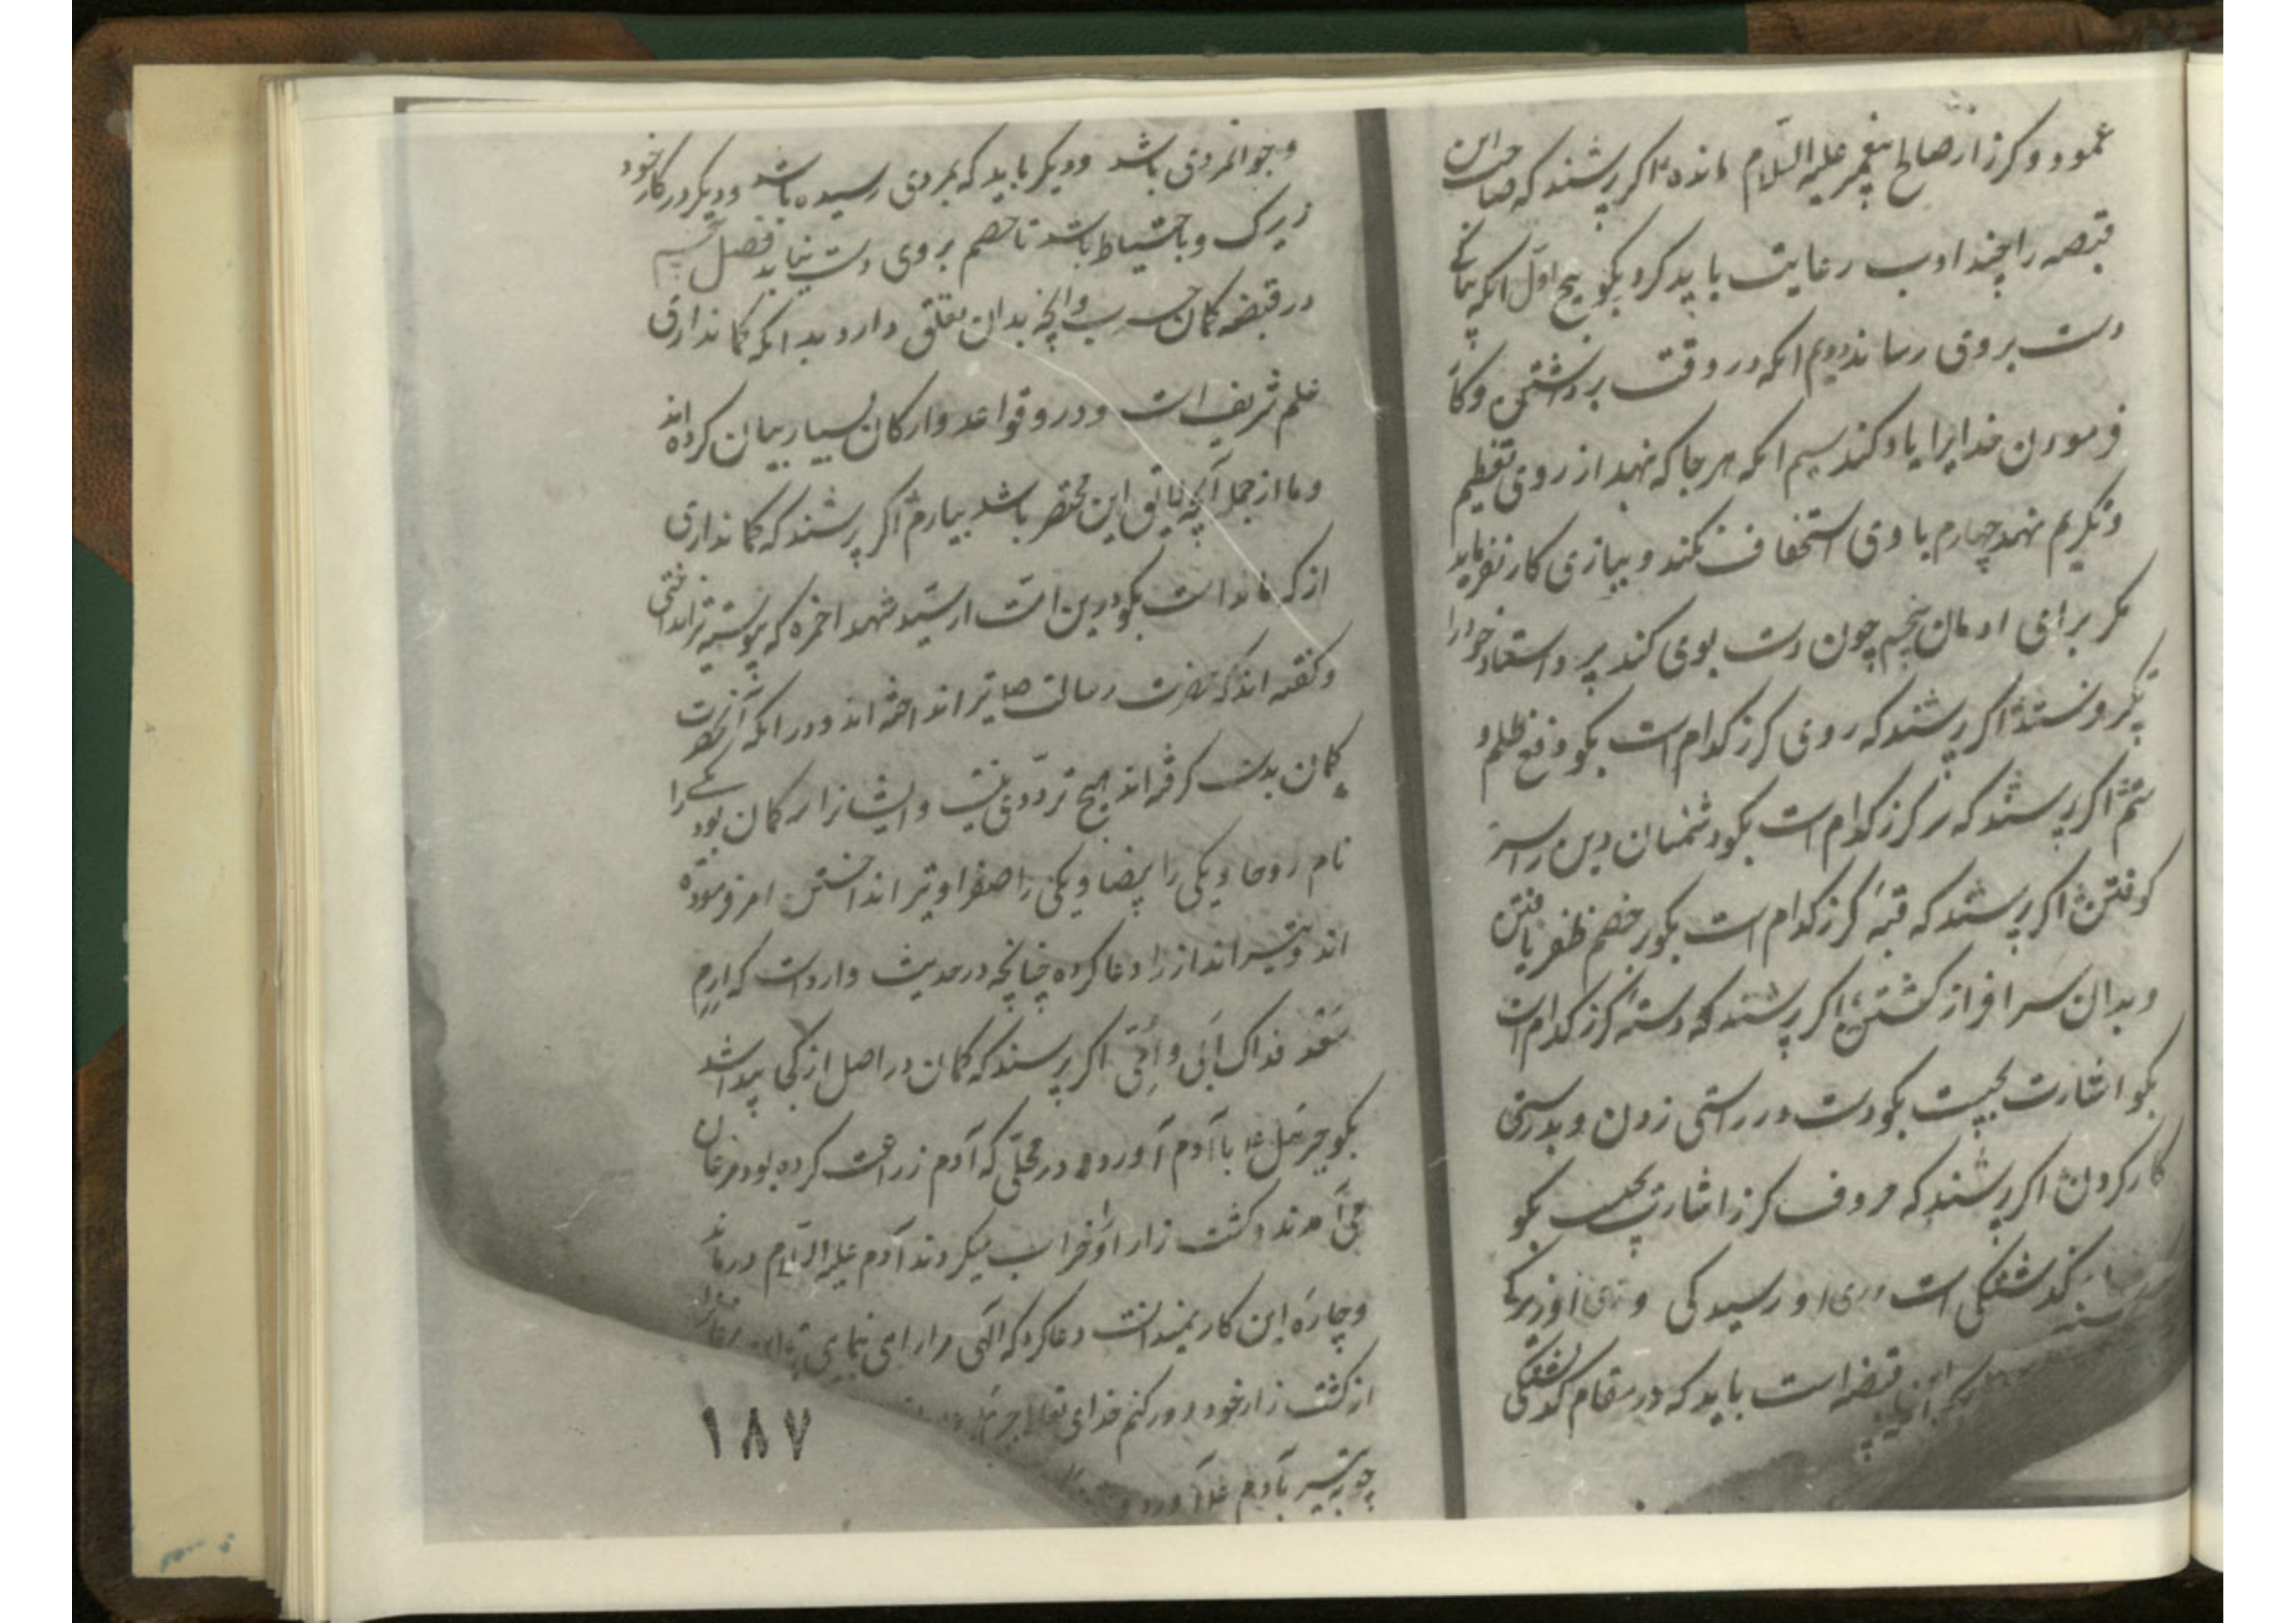 عمود و کرز از صالح پیغمبر علیه السلام مانده اکر پرسند که صاحب این
قبضه را بچند ادب رعایت باید کرد بکو پنج اول انکه
دست بر وی رساند دویم انکه در وقت برداشتن و کار
فرمودن خدایرا یاد کند سیم انکه هر جا که نهد از روی تعظیم
و تکریم نهد چهارم با وی استخفاف نکند و ببازی کار نفرماید
مکر برای ادمان پنجم چون دست بوی کند پیر و استاد خود را
تکبر فرستد اکر پرسند که روی کرز کدام است بکو دفع ظلم و
ستم اکر پرسند که سر کرز کدام است بکو دشمنان دین را سر
کوفتن اکر پرسند که قبهٔ کرز کدام است بکو بر خصم ظفر یافتن
و بدان سر افراز کشتن اکر پرسند که دستهٔ کرز کدام است
بکو اشارت بچیست بکو دست در راستی زدن و بدرستی
کار کردن اکر پرسند که حروف کرز اشارت بچیست بکو
کذشتکی است و رای او رسیدکی و زای او زیرکی
قبضه است باید که در مقام کذشتکی
و جوانمردی باشد و دیکر باید که بمردی رسیده باشد و دیکر در کار خود
زیرک و با احتیاط باشد تا خصم بر وی دست نیابد فصل
در قبضه کمان و انچه بدان تعلق دارد بدانکه کمانداری
علم شریف است و درو قواعد و ارکان بسیار بیان کرده اند
و ما از جمله آنچه لایق این مختصر باشد بیارم اکر پرسند که کمانداری
از که مانداست بکو درین امت از سید شهدا حمزه که پیوسته تیر انداختی
و کفته اند که حضرت رسالت ص تیر انداخته اند و در انکه آنحضرت
کمان بدست کرفته اند هیچ ترددی نیست و ایشانرا سه کمان بود یکی را
نام روحا و یکی را بیضا و یکی را صفرا و تیر انداختن امر فرموده
اند و تیر انداز را دعا کرده چنانچه در حدیث وارداست که ارم
سعد فداک ابی و امی اکر پرسند که کمان در اصل از کجا پیدا شد
بکو جبرئیل ع با آدم آورد در محلی که آدم زراعت کرده بود مرغان
می آمدند و کشت زار او خراب میکردند آدم علیه السلام درماند
و چاره این کار نمیدانست دعا کرد که الهی مرا رای نمای
از کشت زار خود دور کنم خدای تعالی جبرئیل
چوب تیر بآدم ع آورد و
۱۸۷